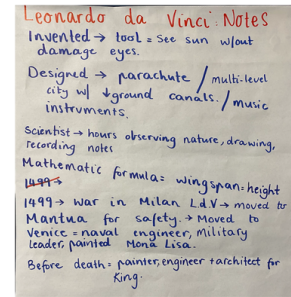 Leonardo da Vinci: Notes
Invented → tool = see sun w/out
damage eyes.
Designed → parachute / multi-level
city w/ ↓ground canals. / music
instruments.
Scientist → hours observing nature, drawing,
recording notes
Mathematic formula = wingspan = height
1499 →
1499 → war in Milan L.d.V → moved to
Mantua for safety. → Moved to
Venice = naval engineer, military
leader, painted Mona Lisa.
Before death = painter, engineer + architect for
King.